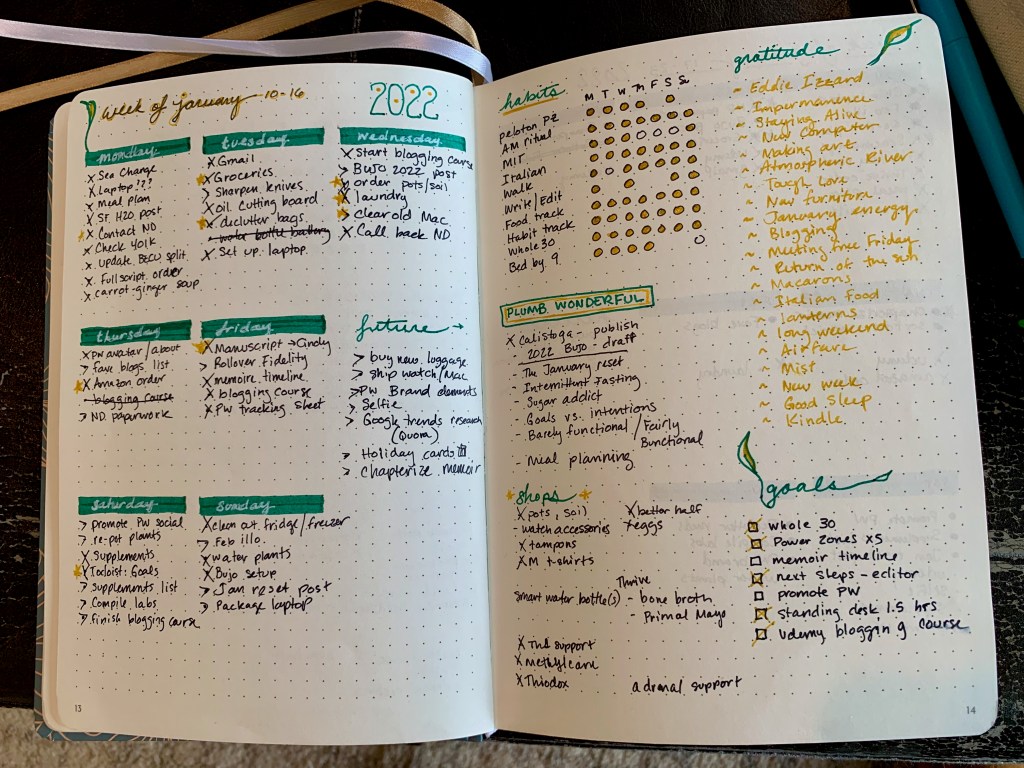 week of january 10-16
2022
monday
x See Change
x Laptop!??
x Meal plan
x SF H2O post
x Contact ND
x Check 401k
x Update BECU split
x Fullscript order
x carrot-ginger soup
tuesday
x Gmail
x Groceries
> Sharpen knives
x oil cutting board
x declutter bags
x Set up laptop
wednesday
x Start blogging course
> BUJO 2022 post
x order pots/soil
x laundry
> clear old Mac
x Call back ND
thursday
x PW avatar/about
> fave blogs list
x Amazon order
blogging course
> ND paperwork
friday
x Manuscript → Cindy
> Rollover Fidelity
x memoire timeline
x blogging course
x PW tracking sheet
future →
> buy new luggage
> ship watch/Mac
> PW Brand elements
> Selfie
> Google trends research
(Quora)
> Holiday cards
> chapterize memoir
saturday
> promote PW social
> re-pot plants
x Supplements
x Todoist: Goals
> Supplements list
> Compile labs
> finish blogging course
someday
x clean out fridge/freezer
> Feb illo
x water plants
x Bujo setup
> Jan reset post
> Package laptop
13
habits
M T W Th F S Su
peloton PZ
AM ritual
MIT
Italian
Walk
Write/Edit
Food track
Habit track
Whole 30
Bed by 9
PLUMB WONDERFUL
x Calistoga - publish
- 2022 Bujo - draft
- The January reset
- Intermittent Fasting
- Sugar addict
- Goals vs. intentions
- Barely functional / Fairly
Bunctional
- Meal planning
shops
x pots, soil
- watch accessories
x tampons
x M t-shirts
x better half
x eggs
Thrive
Smart water bottle(s)
- bone broth
- Primal Mayo
x Thiodox
adrenal support
gratitude
~ Eddie Izzard
~ Impermanence
~ Staying Alive
~ New Computer
~ Making art
~ Atmospheric River
~ Tough Love
~ New furniture
~ January energy
~ Blogging
~ Meeting free Friday
~ Return of the sun
~ Macarons
~ Italian food
~ lanterns
~ long weekend
~ Airfare
~ Mist
~ New Week
~ Good Sleep
~ Kindle
goals
whole 30
Power zones x5
memoir timeline
next steps - editor
promote PW
standing desk 1.5 hrs
Udemy blogging course
14